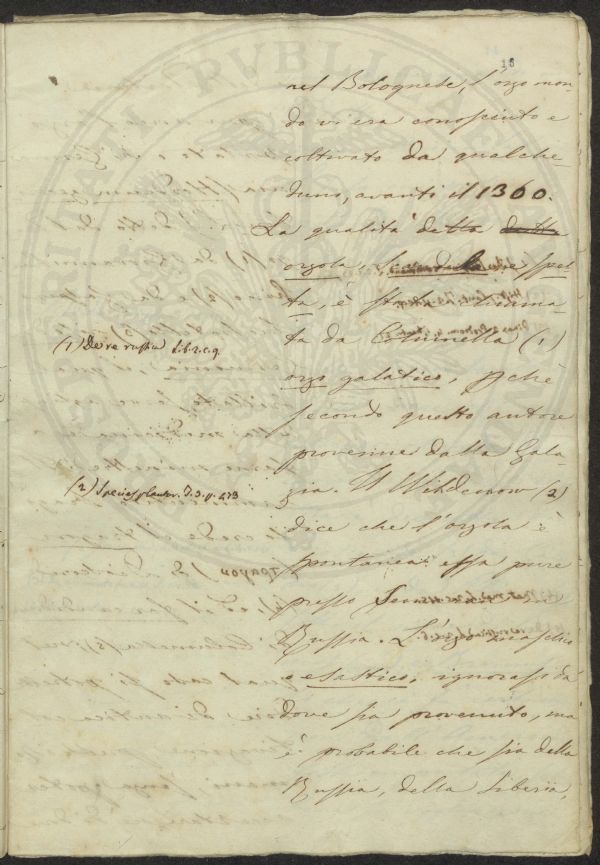 18
nel Bolognese, l'orzo mon-
do vi era conosciuto e
coltivato da qualche-
duno, avanti il 1360.
La qualità detta detta
orzola, e spel-
ta, è stata
ta da Columella (1)
orzo galatico, pchè
secondo questo autore
provenne dalla Gala-
zia. Il Wildenow (2)
dice che l'orzola è
spontanea essa pure
presso
Russia. L'orzo maschio
o esastico, ignorasi da
dove sia provenuto, ma
è probabile che sia della
Russia, della Siberia,
(1) De re rustica Lib. 2. c. 9.
(2) Species plantar. T. 3. p. 473
PVBLICAE